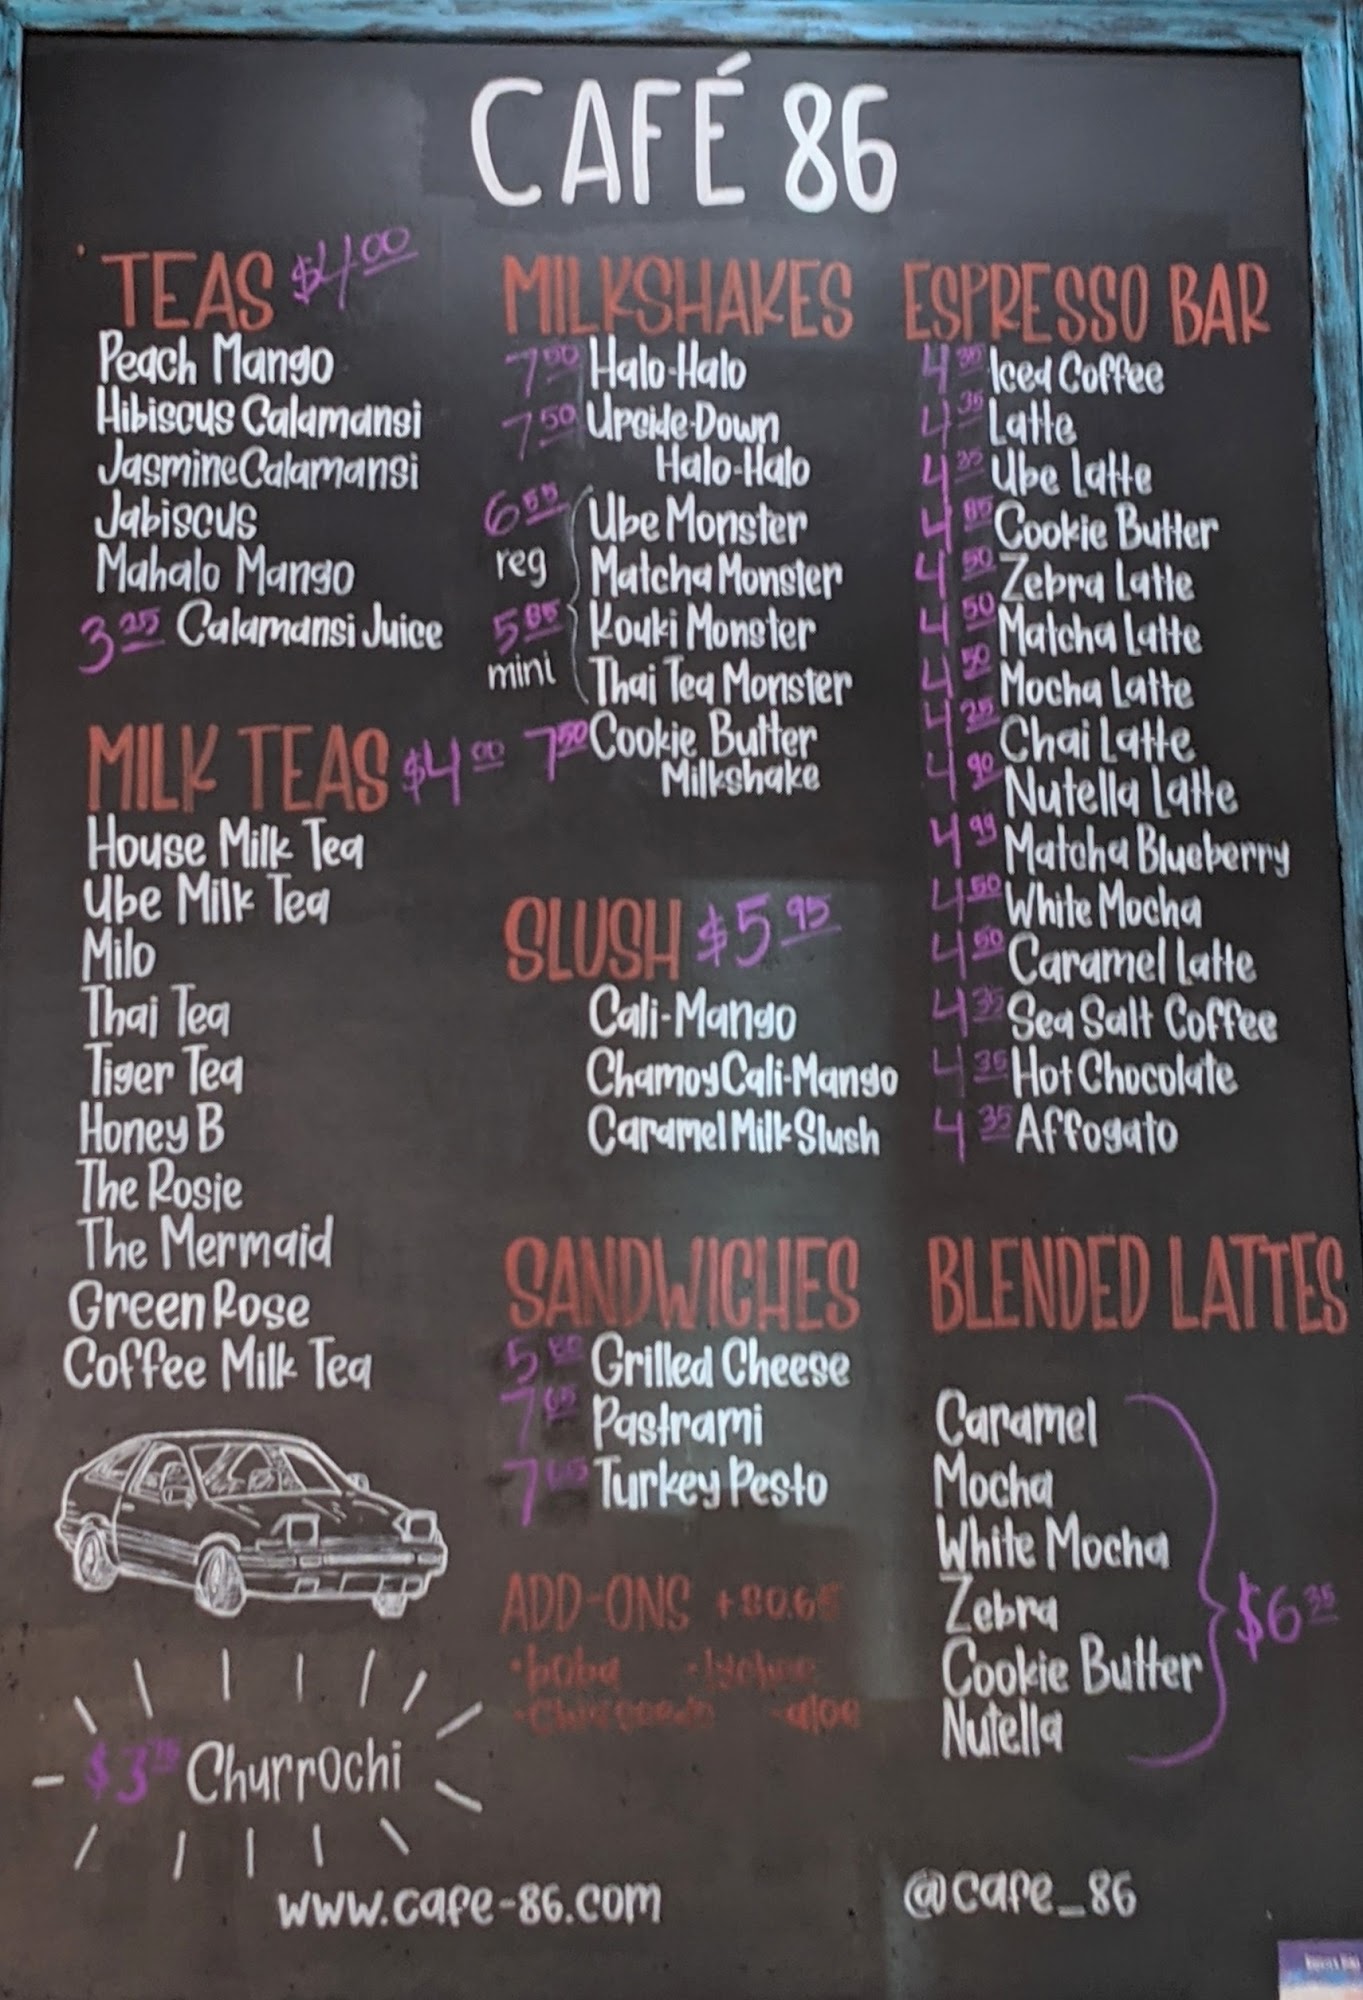 CAFÉ 86
TEAS $4.00
Peach Mango
Hibiscus Calamansi
Jasmine Calamansi
Jabiscus
Mahalo Mango
3.25 Calamansi Juice
MILK TEAS $4.00
House Milk Tea
Ube Milk Tea
Milo
Thai Tea
Tiger Tea
Honey B
The Rosie
The Mermaid
Green Rose
Coffee Milk Tea
$3.75 Churrochi
MILKSHAKES
7.50 Halo-Halo
7.50 Upside-Down
Halo-Halo
6.55 Ube Monster
reg Matcha Monster
5.85 Kouki Monster
mini Thai Tea Monster
7.50 Cookie Butter
Milkshake
SLUSH $5.95
Cali-Mango
Chamoy Cali-Mango
Caramel Milk Slush
SANDWICHES
Grilled Cheese
7.65 Pastrami
7.65 Turkey Pesto
ADD-ONS
·boba
-aloe
ESPRESSO BAR
4.35 Iced Coffee
4.35 Latte
4.35 Ube Latte
4.85 Cookie Butter
4.50 Zebra Latte
4.50 Matcha Latte
4.50 Mocha Latte
4.25 Chai Latte
4.90 Nutella Latte
4.99 Matcha Blueberry
4.50 White Mocha
4.50 Caramel Latte
4.35 Sea Salt Coffee
4.35 Hot Chocolate
4.35 Affogato
BLENDED LATTES
Caramel
Mocha
White Mocha
Zebra
$6.35
Cookie Butter
Nutella
www.cafe-86.com
@cafe_86